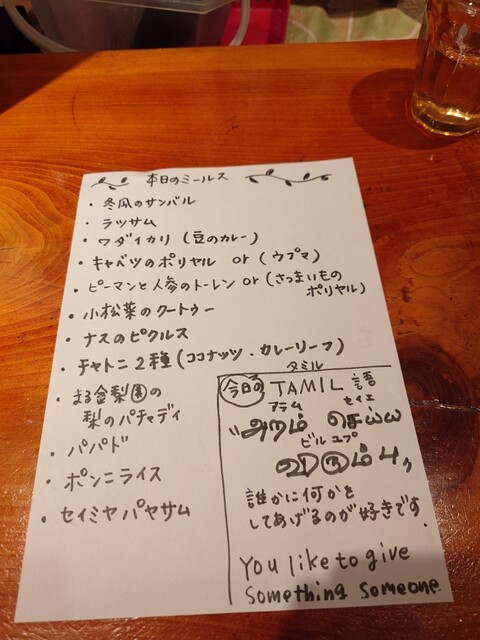 本日のミールス
・冬瓜のサンバル
・ラッサム
・ワダイカリ (豆のカレー)
・キャベツのポリヤル or (ウプマ)
・ピーマンと人参のトーレン or (さつまいもの
ポリヤル)
・小松菜のクートゥー
・ナスのピクルス
・チャトニ2種 (ココナッツ・カレーリーフ)
・まる金梨園の
梨のパチャディ
・パパド
・ポンニライス
・セイミヤパヤサム
タミル
今日の TAMIL 語
アラム セイエ
"அறம் செய்ய
ビルユプ
விரும்பு"
誰かに何かを
してあげるのが好きです.
You like to give
something someone